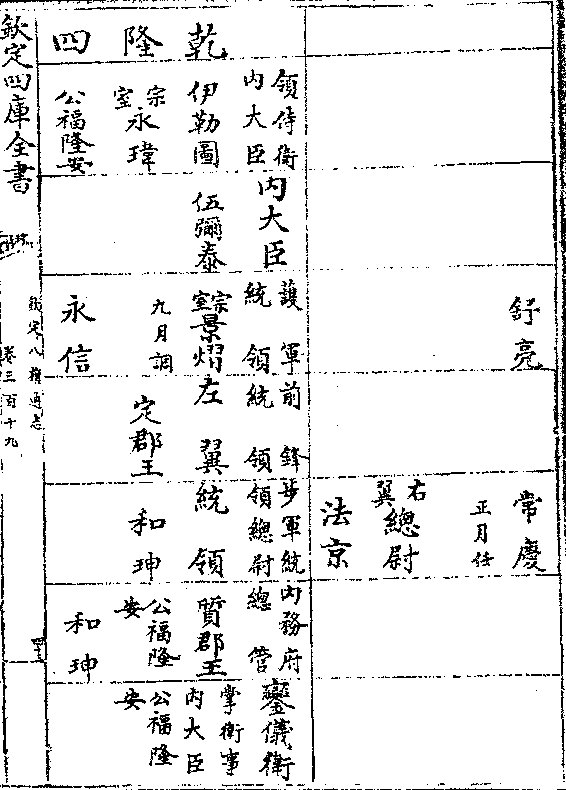 舒亮
常慶
正月任
右翼總尉
法京
乾隆四
領侍衛
内大臣
伊勒圖
宗室永瑋
公福隆安
内大臣
伍彌泰
護軍
統領
宗室景熠
九月調
永信
前鋒
統領
左翼
定郡王
步軍統
領總尉
統領
和珅
内務府
總管
質郡王
公福隆
安
和珅
鑾儀衛
掌衛事
内大臣
公福隆
安
欽定四庫全書
欽定八旗通志
卷三百十九